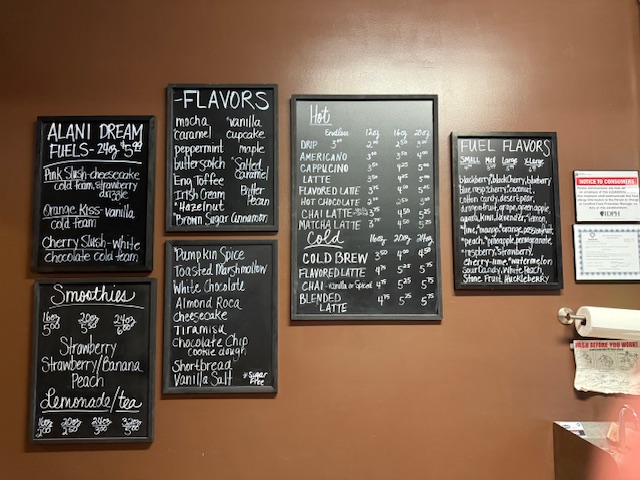 ALANI DREAM
FUELS - 24oz $5.99
Pink Slush - cheesecake
cold foam, strawberry
drizzle
Orange Kiss - vanilla
cold foam
Cherry Slush - White
chocolate cold foam
Smoothies
16oz 20oz 24oz
5.00 5.50 6.00
Strawberry
Strawberry/Banana
Peach
Lemonade/tea
16oz 20oz 24oz 32oz
-FLAVORS
mocha *vanilla
*caramel cupcake
peppermint maple
butterscotch *Salted
Caramel
Eng Toffee Butter
Pecan
Irish Cream
*Hazelnut
*Brown Sugar Cinnamon
*Pumpkin Spice
Toasted Marshmallow
*White Chocolate
Almond Roca
cheesecake
Tiramisu
Chocolate Chip
cookie dough
Shortbread
Vanilla Salt *Sugar
Free
Hot
Endless 12oz 16oz 20oz
DRIP
AMERICANO
CAPPUCINO
LATTE
FLAVORED LATTE
HOT CHOCOLATE
CHAI LATTE
MATCHA LATTE
Cold
16oz 20oz 24oz
COLD BREW 3.50 4.00 4.50
FLAVORED LATTE 4.75 5.25 5.75
CHAI - Vanilla or Spiced 4.75 5.25 5.75
BLENDED 4.75 5.25 5.75
LATTE
FUEL FLAVORS
SMALL Med Large X-Large
blackberry, black Cherry, blueberry
blue raspcherry, coconut,
cotton candy, desert pear,
dragonfruit, grape, green apple,
guava, kiwi, lavender, *lemon,
*lime, *mango, orange, passionfruit
*peach, *pineapple, pomegranate,
*raspberry, strawberry,
cherry-lime, *watermelon,
Sour Candy, White Peach,
Stone Fruit, Huckleberry
NOTICE TO CONSUMERS
IDPH
WASH BEFORE YOU WORK!